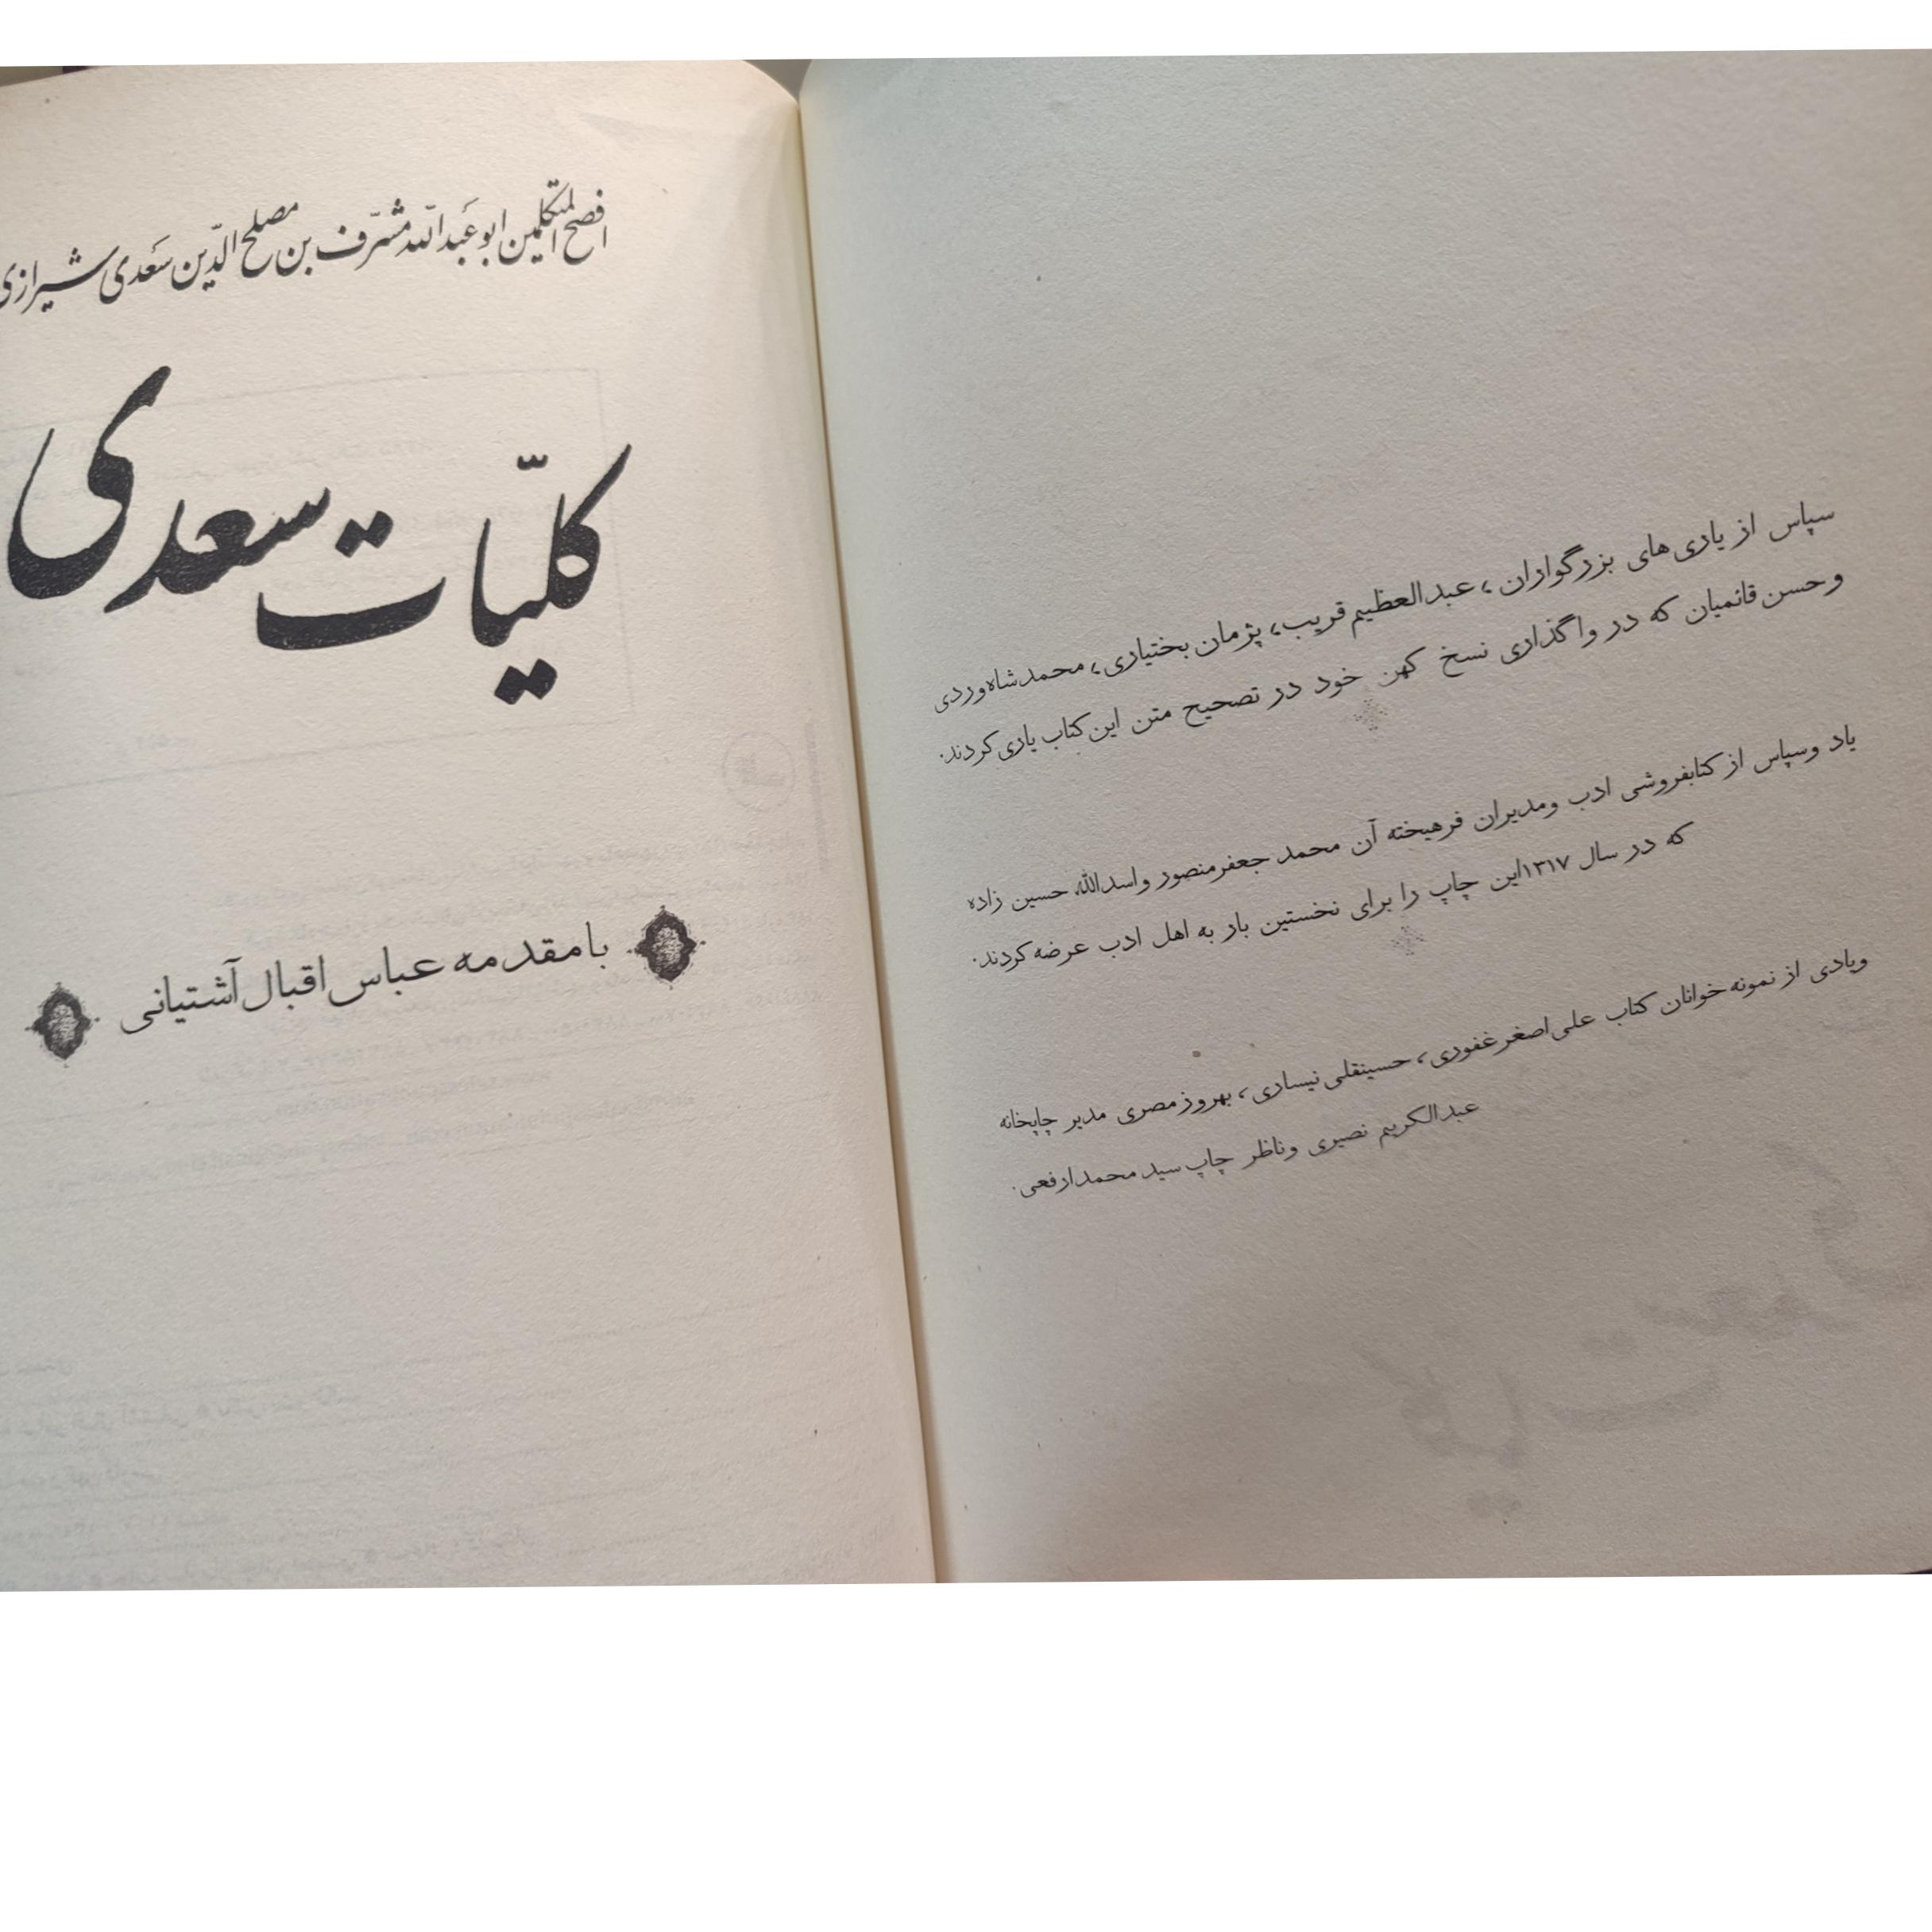 سپاس از یاری‌های بزرگواران، عبدالعظیم قریب، پژمان بختیاری، محمد شاه‌وردی
و حسن قائمیان که در واگذاری نسخ کهن خود در تصحیح متن این کتاب یاری کردند.
یاد و سپاس از کتابفروشی ادب و مدیران فرهیخته آن محمد جعفر منصور و اسدالله حسین زاده
که در سال ۱۳۱۷ این چاپ را برای نخستین بار به اهل ادب عرضه کردند.
و یادی از نمونه خوانان کتاب علی اصغر غفوری، حسینقلی نیساری، بهروز مصری مدیر چاپخانه
عبدالکریم نصیری و ناظر چاپ سید محمد ارفعی.
افصح المتکلمین ابو عَبدالله مشرّف بن مصلح الدّین سَعدی شیرازی
کلیّات سعدی
با مقدمه عباس اقبال آشتیانی